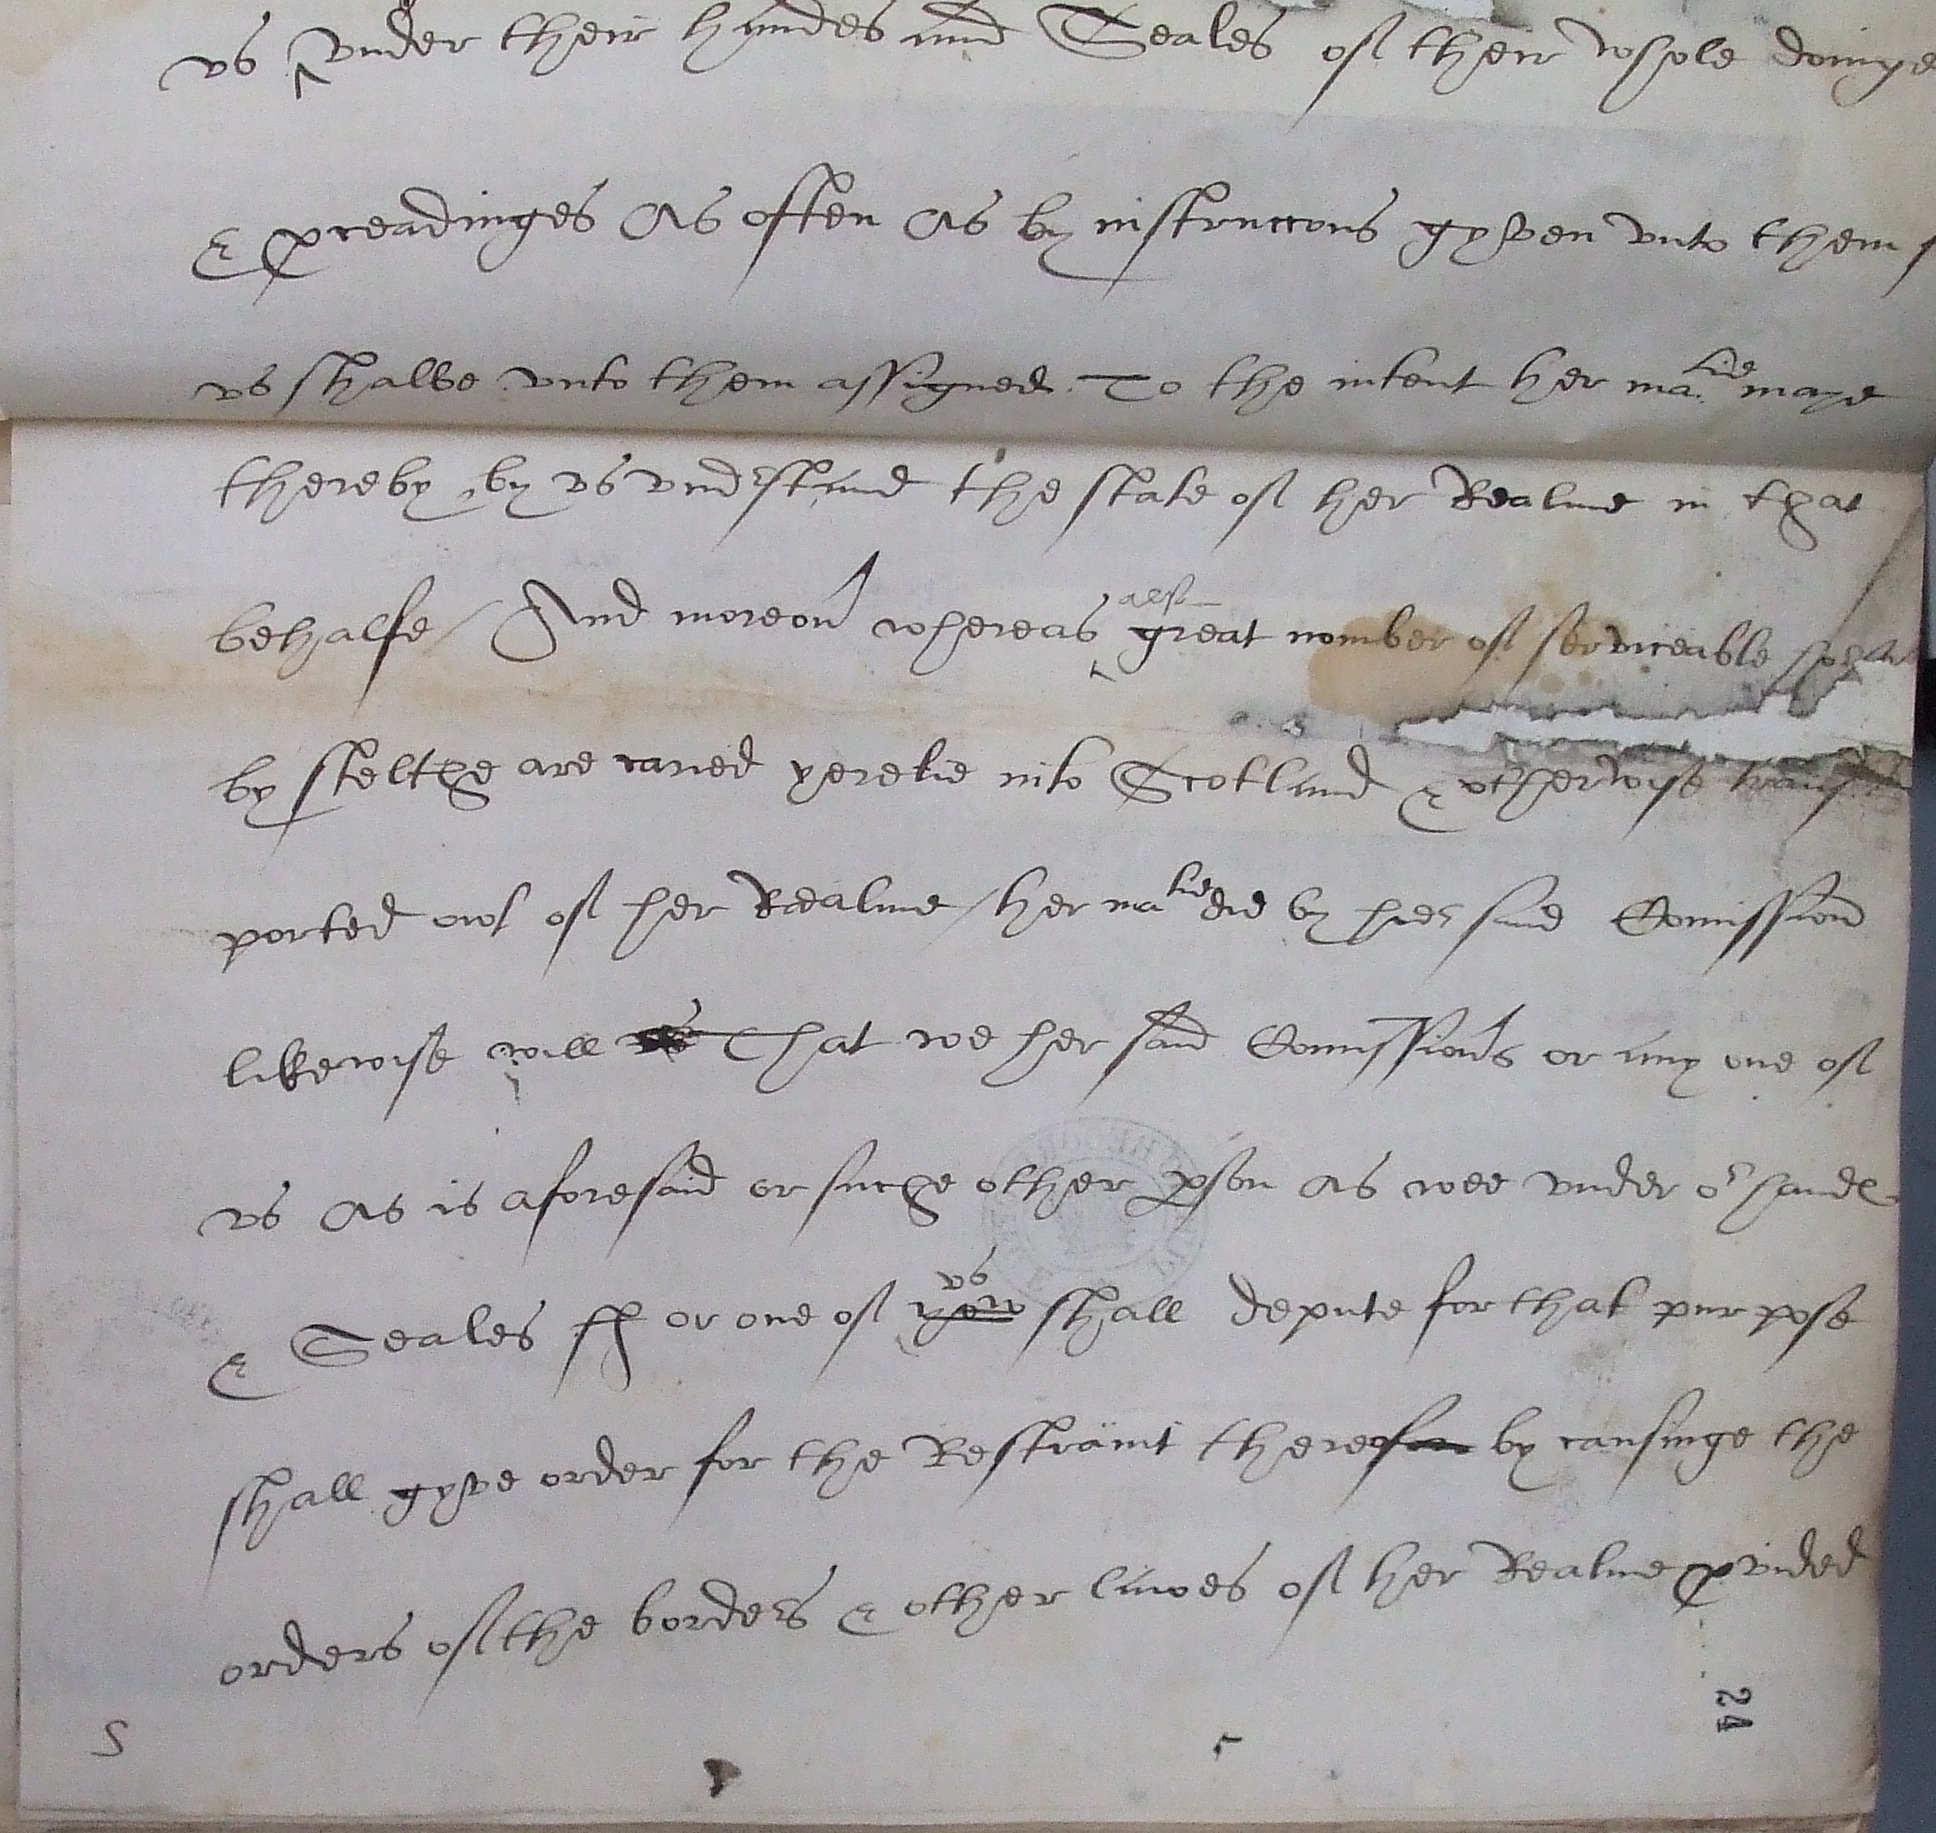 vs ^ vnder their handes and Seales of their whole doinge
& pceadinges As often As by instruccons gyven vnto them
vs shalbe vnto them assigned. To the intent her matie maye
thereby by vs vnderstand the state of her Realme in that
behalfe / And moreour whereas ^ also great nomber of serviceable
by stelthe are caried yerelie into Scotland & otherwise trans
ported owt of her Realme / her matie did by hir said Comission
likewise will That we her said Comissionrs or any one of
vs As is aforesaid or suche other pson As wee vnder or hand
& Seales or one of yow vs shall depute for that purpose
shall gyve order for the Restraint therefore by causinge the
orders of the borders & other lawes of her Realme pvided
24
5